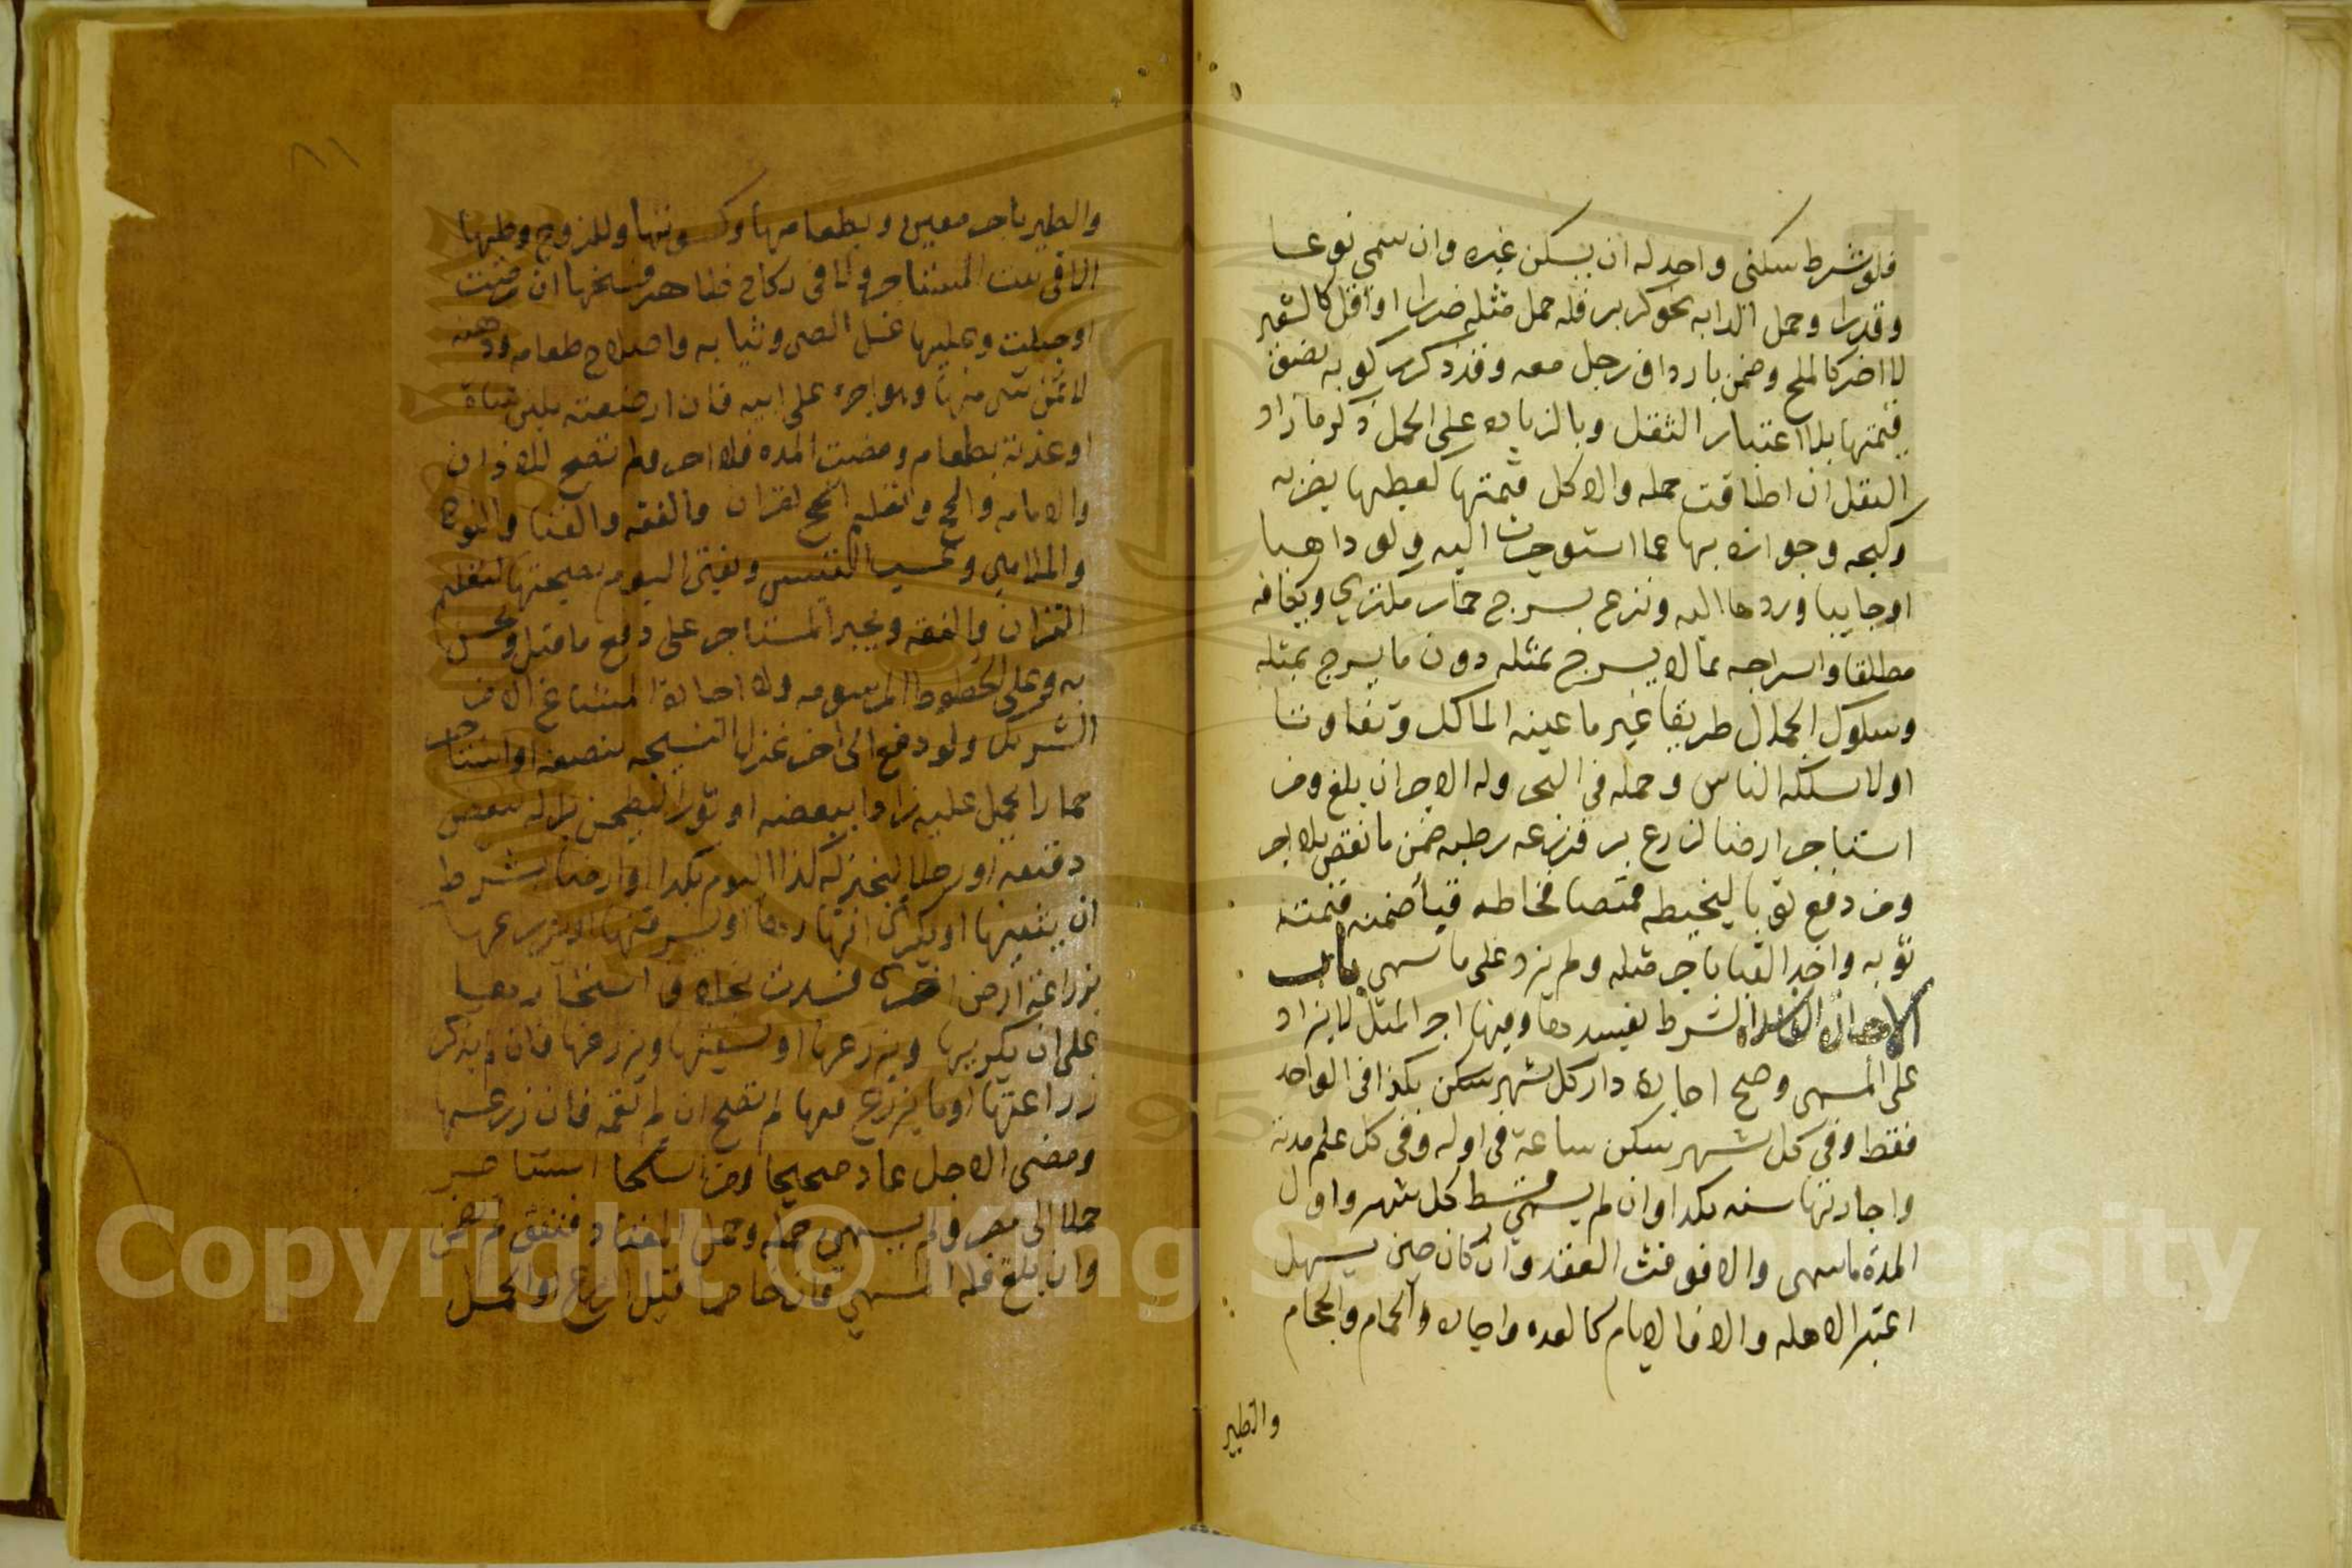 فلو شرط سكنى واحد له ان يسكن غيره وان سمي نوعا
وقدرا وحمل الدابه نحو كر بر فله حمل مثله ضررا او اقل كالشعير
لا اضر كالملح وضمن بارداف رجل معه وقد ذكر ركوبه نصف
قيمتها بلا اعتبار الثقل وبالزياده على الحمل ذكر ما زاد
الثقل ان اطاقت حمله والا كل قيمتها كعطبها بضربه
وكبحه وجوازه بها عما استوجرت اليه ولو ذاهبا
او جاييا وردها اليه ونزع سرج حمار مكتري وايكافه
مطلقا واسراجه بما لا يسرج بمثله دون ما يسرج بمثله
وسلوك الجمال طريقا غير ما عينه المالك وتفاوتا
او لا يسلكه الناس وحمله في البحر وله الاجر ان بلغ ومن
استاجر ارضا لزرع بر فزرعه رطبه ضمن ما نقص بلا اجر
ومن دفع ثوبا ليخيطه قميصا فخاطه قبا ضمنه قيمة
ثوبه واخذ القبا باجر مثله ولم يزد على ما سمي باب
الاجارة الفاسده الشرط يفسدها وفيها اجر المثل لا يزاد
على المسمى وصح اجارة دار كل شهر سكن بكذا في الواحد
فقط وفي كل شهر سكن ساعة في اوله وفي كل علم مدته
واجارتها سنه بكذا وان لم يسمي قسط كل شهر واول
المدة ما سمي والا فوقت العقد وان كان حين يهل
اعتبر الاهله والا فالايام كالعده واجارة الحمام والحجام
والظير
٨١
والظير باجر معين وبطعامها وكسوتها وللزوج وطيها
الا في بيت المستاجر وله في نكاح ظاهر فسخها ان مرضت
او حبلت وعليها غسل الصبي وثيابه واصلاح طعامه ودهنه
لا ثمن شي منها وهو واجره على ابيه فان ارضعته بلبن شاة
او غذته بطعام ومضت المده فلا اجر ولم تصح للاذان
والامامه والحج وتعليم القران والفقه والغنا والنوح
والملاهي وعسب التيس ويفتى اليوم بصحتها لتعليم
القران والفقه ويجبر المستاجر على دفع ما قبل ويحبس
به وعلى الحلوة المرسومه ولا اجارة المشاع الا من
الشريك ولو دفع الى اخر غزلا لينسجه بنصفه او استاجر
حمارا ليحمل عليه زادا ببعضه او ثورا ليطحن برا له ببعض
دقيقه او رجلا ليخبز له كذا اليوم بكذا او ارضا بشرط
ان يثنيها او يكري انهارها او يسرقنها او يزرعها
بزراعة ارض اخرى فسدت بخلاف استيجارها
على ان يكربها ويزرعها او يسقيها ويزرعها فان لم يذكر
زراعتها او ما يزرع فيها لم تصح ان لم يعمم فان زرعها
ومضى الاجل عاد صحيحا ومن استاجر
جملا الى مصر ولم يسمي حمله وحمل المعتاد فنفق لم يضمن
وان بلغ فله المسمي فان تخاصما قبل الزرع او الحمل